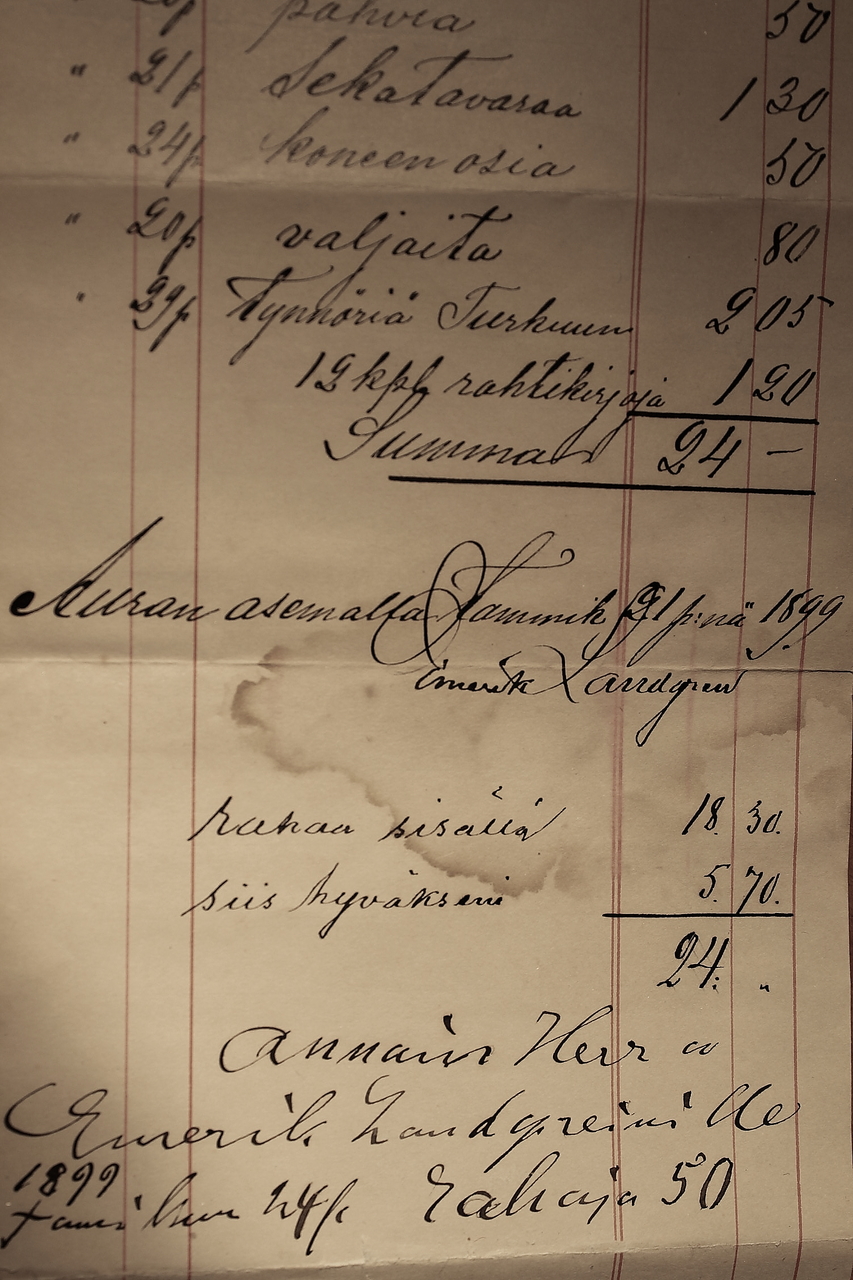 pahvia 50
" 21p Sekatavaraa 1 30
" 24p koneen osia 50
" 20p valjaita 80
" 29p tynnöriä Turkuun 2 05
12 kpl rahtikirjoja 1 20
Summa 24 –
Auran asemalla Tammik 21 p:nä 1899
Emerik Landgren
rahaa sisällä 18. 30.
siis hyväkseni 5. 70.
24: "
annoin Herr
Emerik Landgreinille
1899
tami kuu 24p rahaja 50